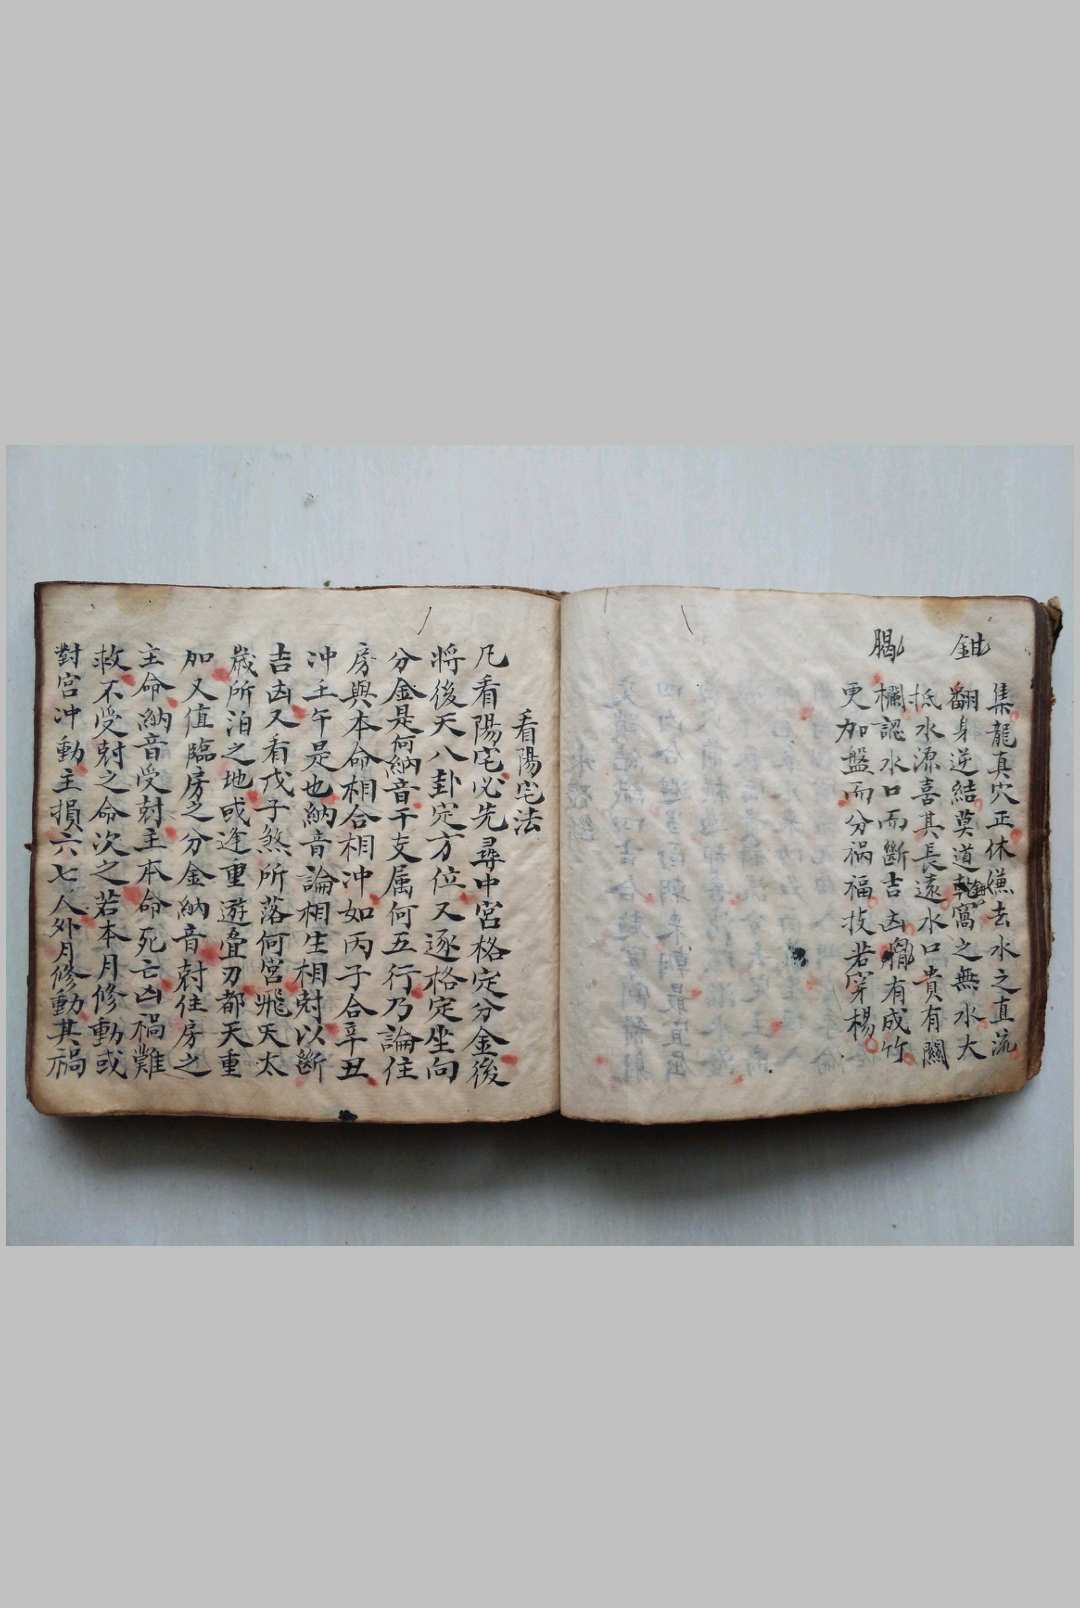 集龍真穴正休慊去水之直流
鉗
翻身逆結莫道乾窩之無水大
抵水源喜其長遠水口貴有關
欄認水口而斷吉凶有成竹
膓
更加盤而分禍福技若穿楊
看陽宅法
凡看陽宅必先尋中宮格定分金後
將後天八卦定方位又逐格定坐向
分金是何納音干支属何五行乃論住
房與本命相合相冲如丙子合辛丑
冲壬午是也納音論相生相尅以斷
吉凶又看戊子煞所落何宮飛天太
歲所泊之地或逢重遊疊刃都天重
加又值臨房之分金納音尅住房之
主命納音受尅主本命死亡凶禍難
救不受尅之命次之若本月修動或
對宮冲動主損六七人外月修動其禍